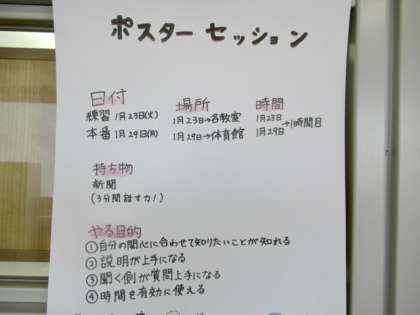 ポスターセッション
日付 場所 時間
練習 1月23日(火) 1月23日→各教室 1月23日
本番 1月29日(月) 1月29日→体育館 1月29日 →1時間目
持ち物
新聞
(3分間話す力!)
やる目的
①自分の関心に合わせて知りたいことが知れる
②説明が上手になる
③聞く側が質問上手になる
④時間を有効に使える